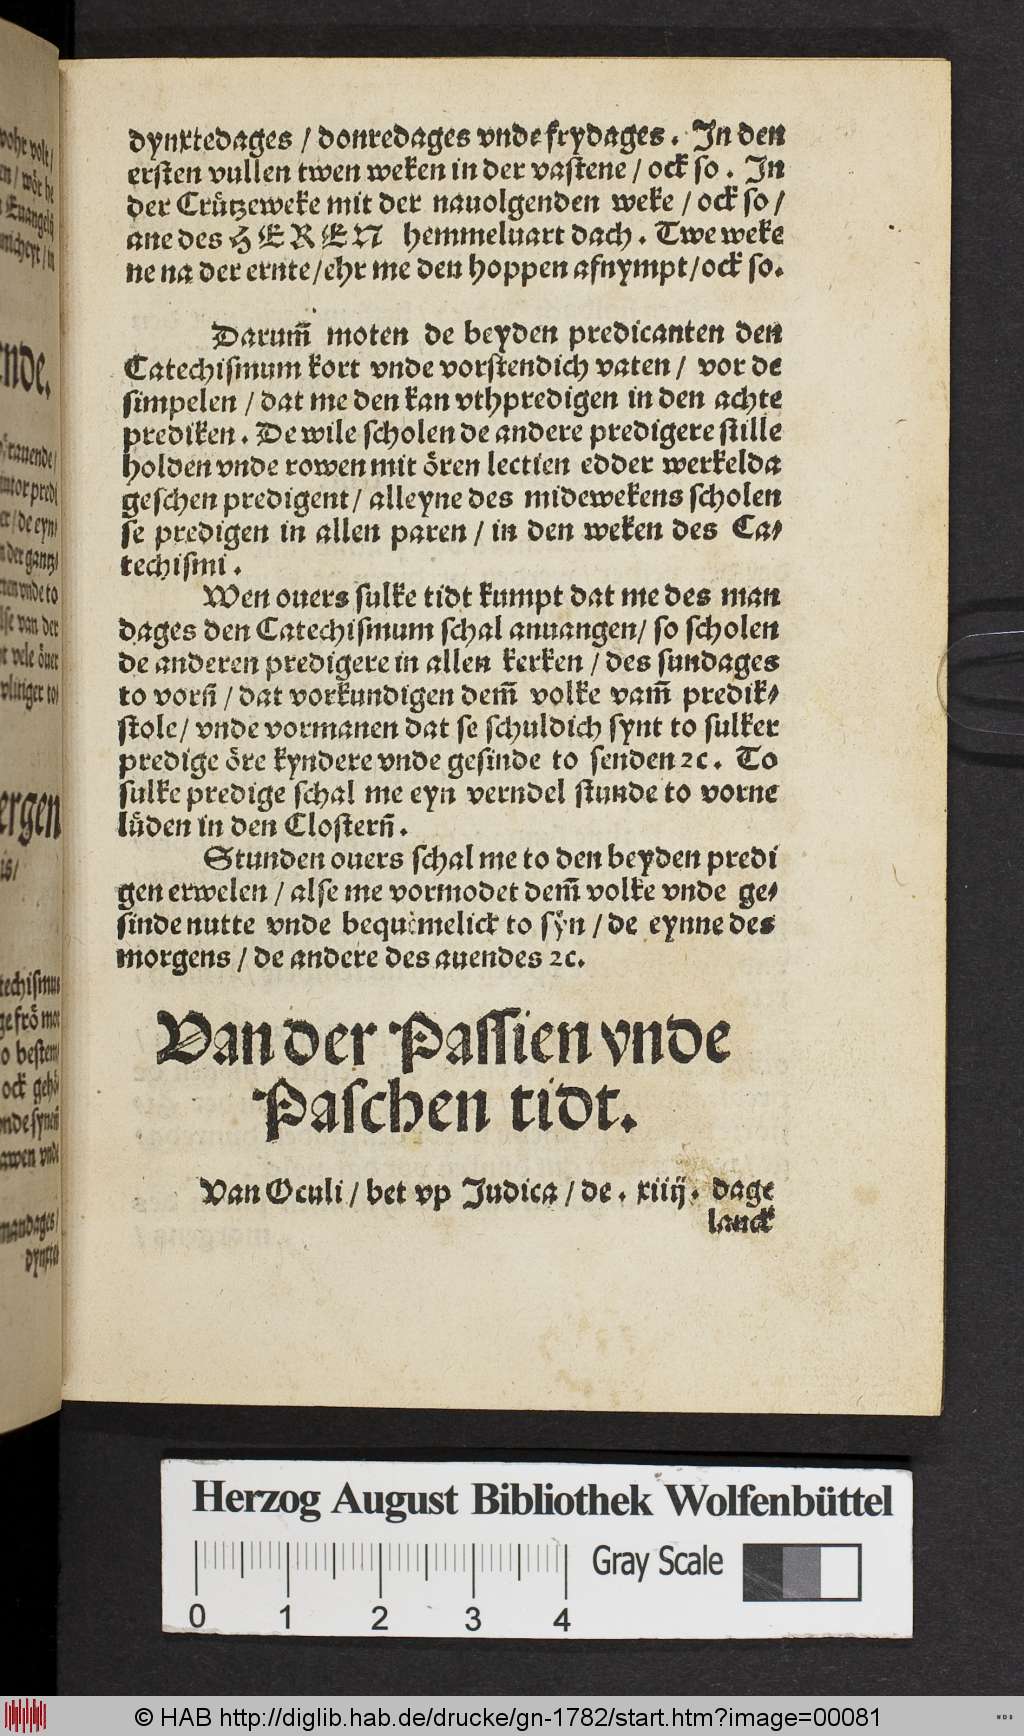 dynxtedages / donredages vnde frydages. In den
ersten vullen twen weken in der vastene / ock so. In
der Crützeweke mit der nauolgenden weke / ock so /
ane des HEREN hemmeluart dach. Twe weke
ne na der ernte / ehr me den hoppen afnympt / ock so.
Darum̃ moten de beyden predicanten den
Catechismum kort vnde vorstendich vaten / vor de
simpelen / dat me den kan vthpredigen in den achte
prediken. De wile scholen de andere predigere stille
holden vnde rowen mit ören lectien edder werkelda
geschen predigent / alleyne des midewekens scholen
se predigen in allen paren / in den weken des Ca⸗
techismi.
Wen ouers sulke tidt kumpt dat me des man
dages den Catechismum schal anuangen / so scholen
de anderen predigere in allen kerken / des sundages
to vorn̄ / dat vorkundigen dem̃ volke vam̃ predik⸗
stole / vnde vormanen dat se schuldich synt to sulker
predige öre kyndere vnde gesinde to senden ꝛc. To
sulke predige schal me eyn verndel stunde to vorne
lüden in den Clostern̄.
Stunden ouers schal me to den beyden predi
gen erwelen / alse me vormodet dem̃ volke vnde ge⸗
sinde nutte vnde bequemelick to syn / de eynne des
morgens / de andere des auendes ꝛc.
Van der Passien vnde
Paschen tidt.
Van Oculi / bet vp Judica / de. xiiij. dage
lanck
vohr volt /
en / wör he
Euangelij
nde.
örauende /
utor predi
er / de eyn⸗
der gantz⸗
vnde to
alse van der
vele öuer
vlitiger to⸗
ergen
is /
techismus
ge frö mor
o bestem⸗
ock gehö⸗
vnde synen̄
awen vnde
mandages /
dynxte
Herzog August Bibliothek Wolfenbüttel
0 1 2 3 4
Gray Scale
© HAB http://diglib.hab.de/drucke/gn-1782/start.htm?image=00081